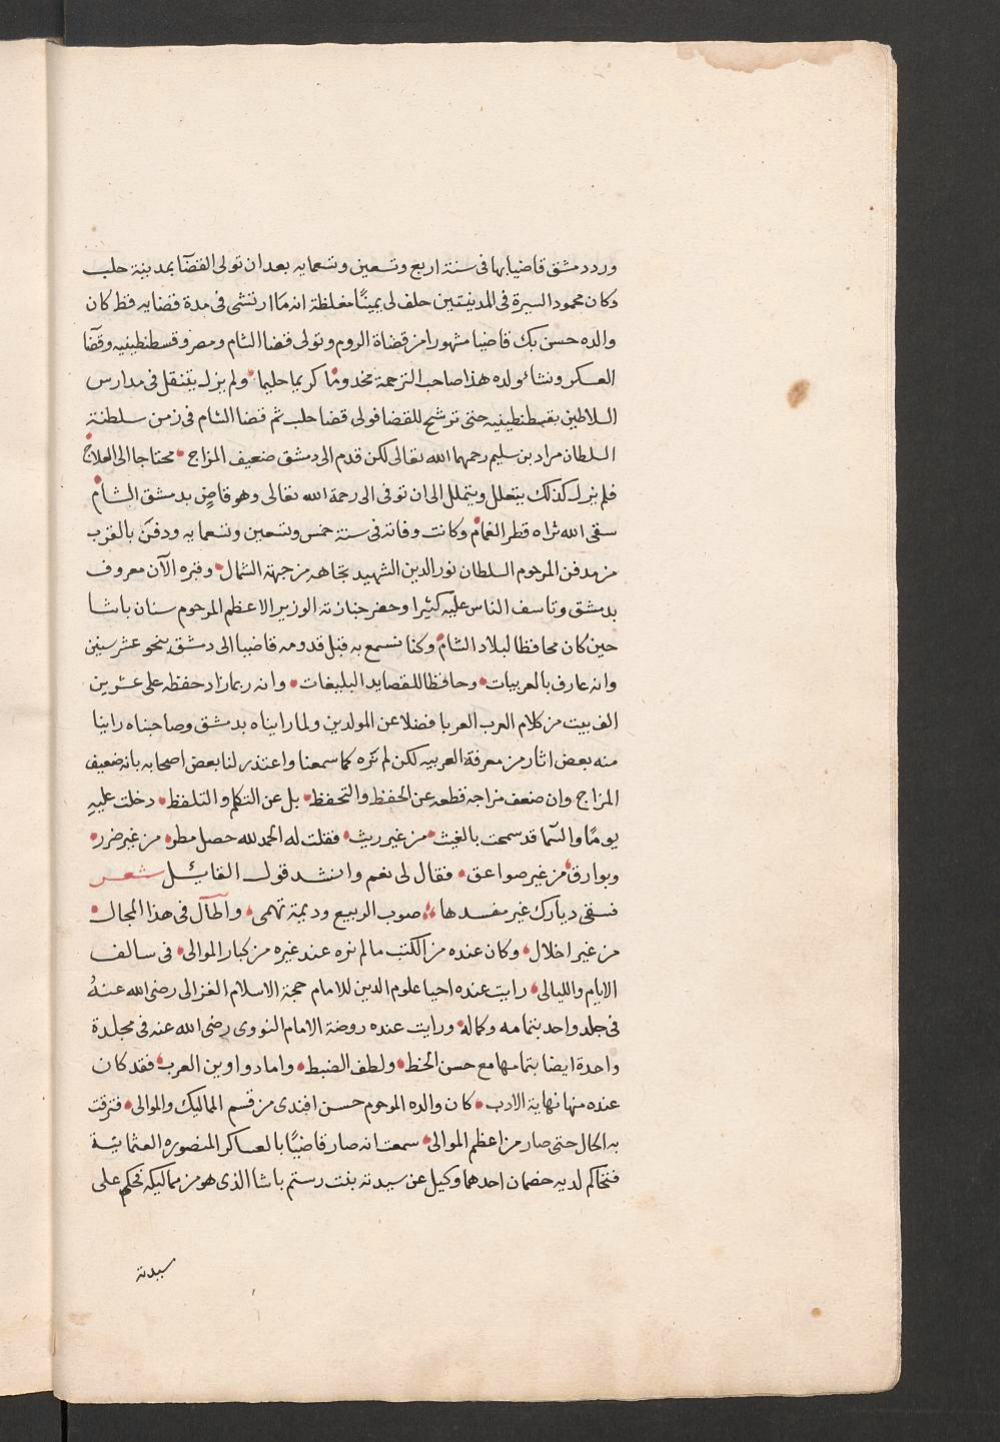 ورد دمشق قاضيا بها فى سنة اربع وتسعين وتسعمايه بعد ان تولى القضآ بمدينة حلب
وكان محمود السيرة فى المدينتين حلف لى يمينًا مغلظة انه ما ارتشى فى مدة قضايه قط كان
والده حسن بك قاضيا مشهورا من قضاة الروم وتولى قضا الشام ومصر وقسطنطينيه وقضآ
العسكر ونشأ ولده هذا صاحب الترجمة مخدومًا كريما حليما ولم يزل يتنقل فى مدارس
السلاطين بقسطنطينيه حتى ترشح للقضا فولى قضا حلب ثم قضا الشام فى زمن سلطنة
السلطان مراد بن سليم رحمهما الله تعالى لكن قدم الى دمشق ضعيف المزاج محتاجا الى العلاج
فلم يزل كذلك يتعلل ويتململ الى ان توفى الى رحمة الله تعالى وهو قاضٍ بدمشق الشام
سقى الله ثراه قطر الغمام وكانت وفاته فى سنة خمس وتسعين وتسعمايه ودفن بالقرب
من مدفن المرحوم السلطان نور الدين الشهيد تجاهه من جهة الشمال وقبره الآن معروف
بدمشق وتاسف الناس عليه كثيرا وحضر جنازته الوزير الاعظم المرحوم سنان باشا
حين كان محافظا لبلاد الشام وكنا نسمع به قبل قدومه قاضيا الى دمشق بنحو عشر سنين
وانه عارف بالعربيات وحافظا للقصايد البليغات وانه ربما زاد حفظه على عشرين
الف بيت من كلام العرب العربا فضلا عن المولدين ولما رايناه بدمشق وصاحبناه راينا
منه بعض اثار من معرفة العربيه لكن لم نره كما سمعنا واعتذر لنا بعض اصحابه بانه ضعيف
المزاج وان ضعف مزاجه قطعه عن الحفظ والتحفظ بل عن التكلم والتلفظ دخلت عليهِ
يومًا والسّما قد سمحت بالغيث من غير ريث فقلت له الحمد لله حصل مطر من غير ضرر
وبوارق من غير صواعق فقال لى نعم وانشد قول القائل شعر
فسقى ديارك غير مفسدها صوب الربيع وديمة تهمى واطآل فى هذا المجال
من غير اخلال وكان عنده من الكتب ما لم نره عند غيره من كبار الموالى فى سالف
الايام والليالى رايت عنده احيا علوم الدين للامام حجة الاسلام الغزالى رضى الله عنهُ
فى جلد واحد بتمامه وكماله ورايت عنده روضة الامام النووى رضى الله عنه فى مجلدة
واحدة ايضا بتمامها مع حسن الخط ولطف الضبط واما دواوين العرب فقد كان
عنده منها نهاية الادب كان والده المرحوم حسن افندى من قسم المماليك والموالى فترقت
به الحال حتى صار من اعظم الموالى سمعت انه صار قاضيًا بالعساكر المنصوره العثمانية
فتحاكم لديه خصمان احدهما وكيل عن سيدته بنت رستم باشا الذى هو من مماليكه فحكم على
سيدته